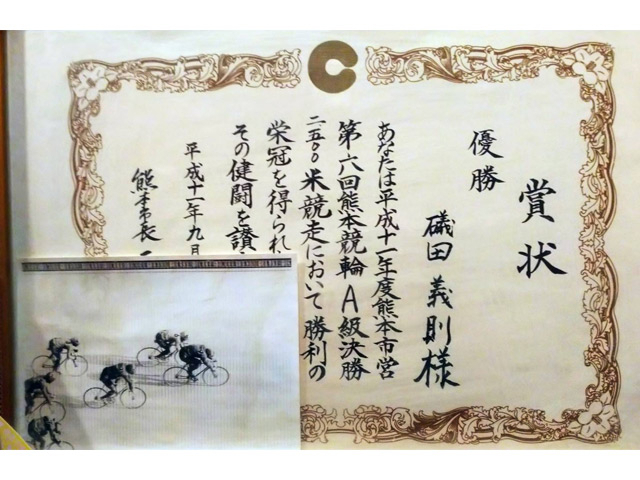 賞状
優勝
礒田義則様
あなたは平成十一年度熊本市営
第六回熊本競輪A級決勝
二五〇〇米競走において勝利の
栄冠を得られ
その健闘を讃
平成十一年九月
熊本市長